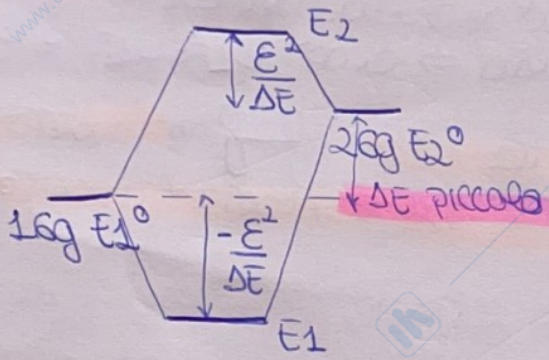 E2
ε²
ΔE
2σg E2°
ΔE piccolo
1σg E1°
-ε²
ΔE
E1